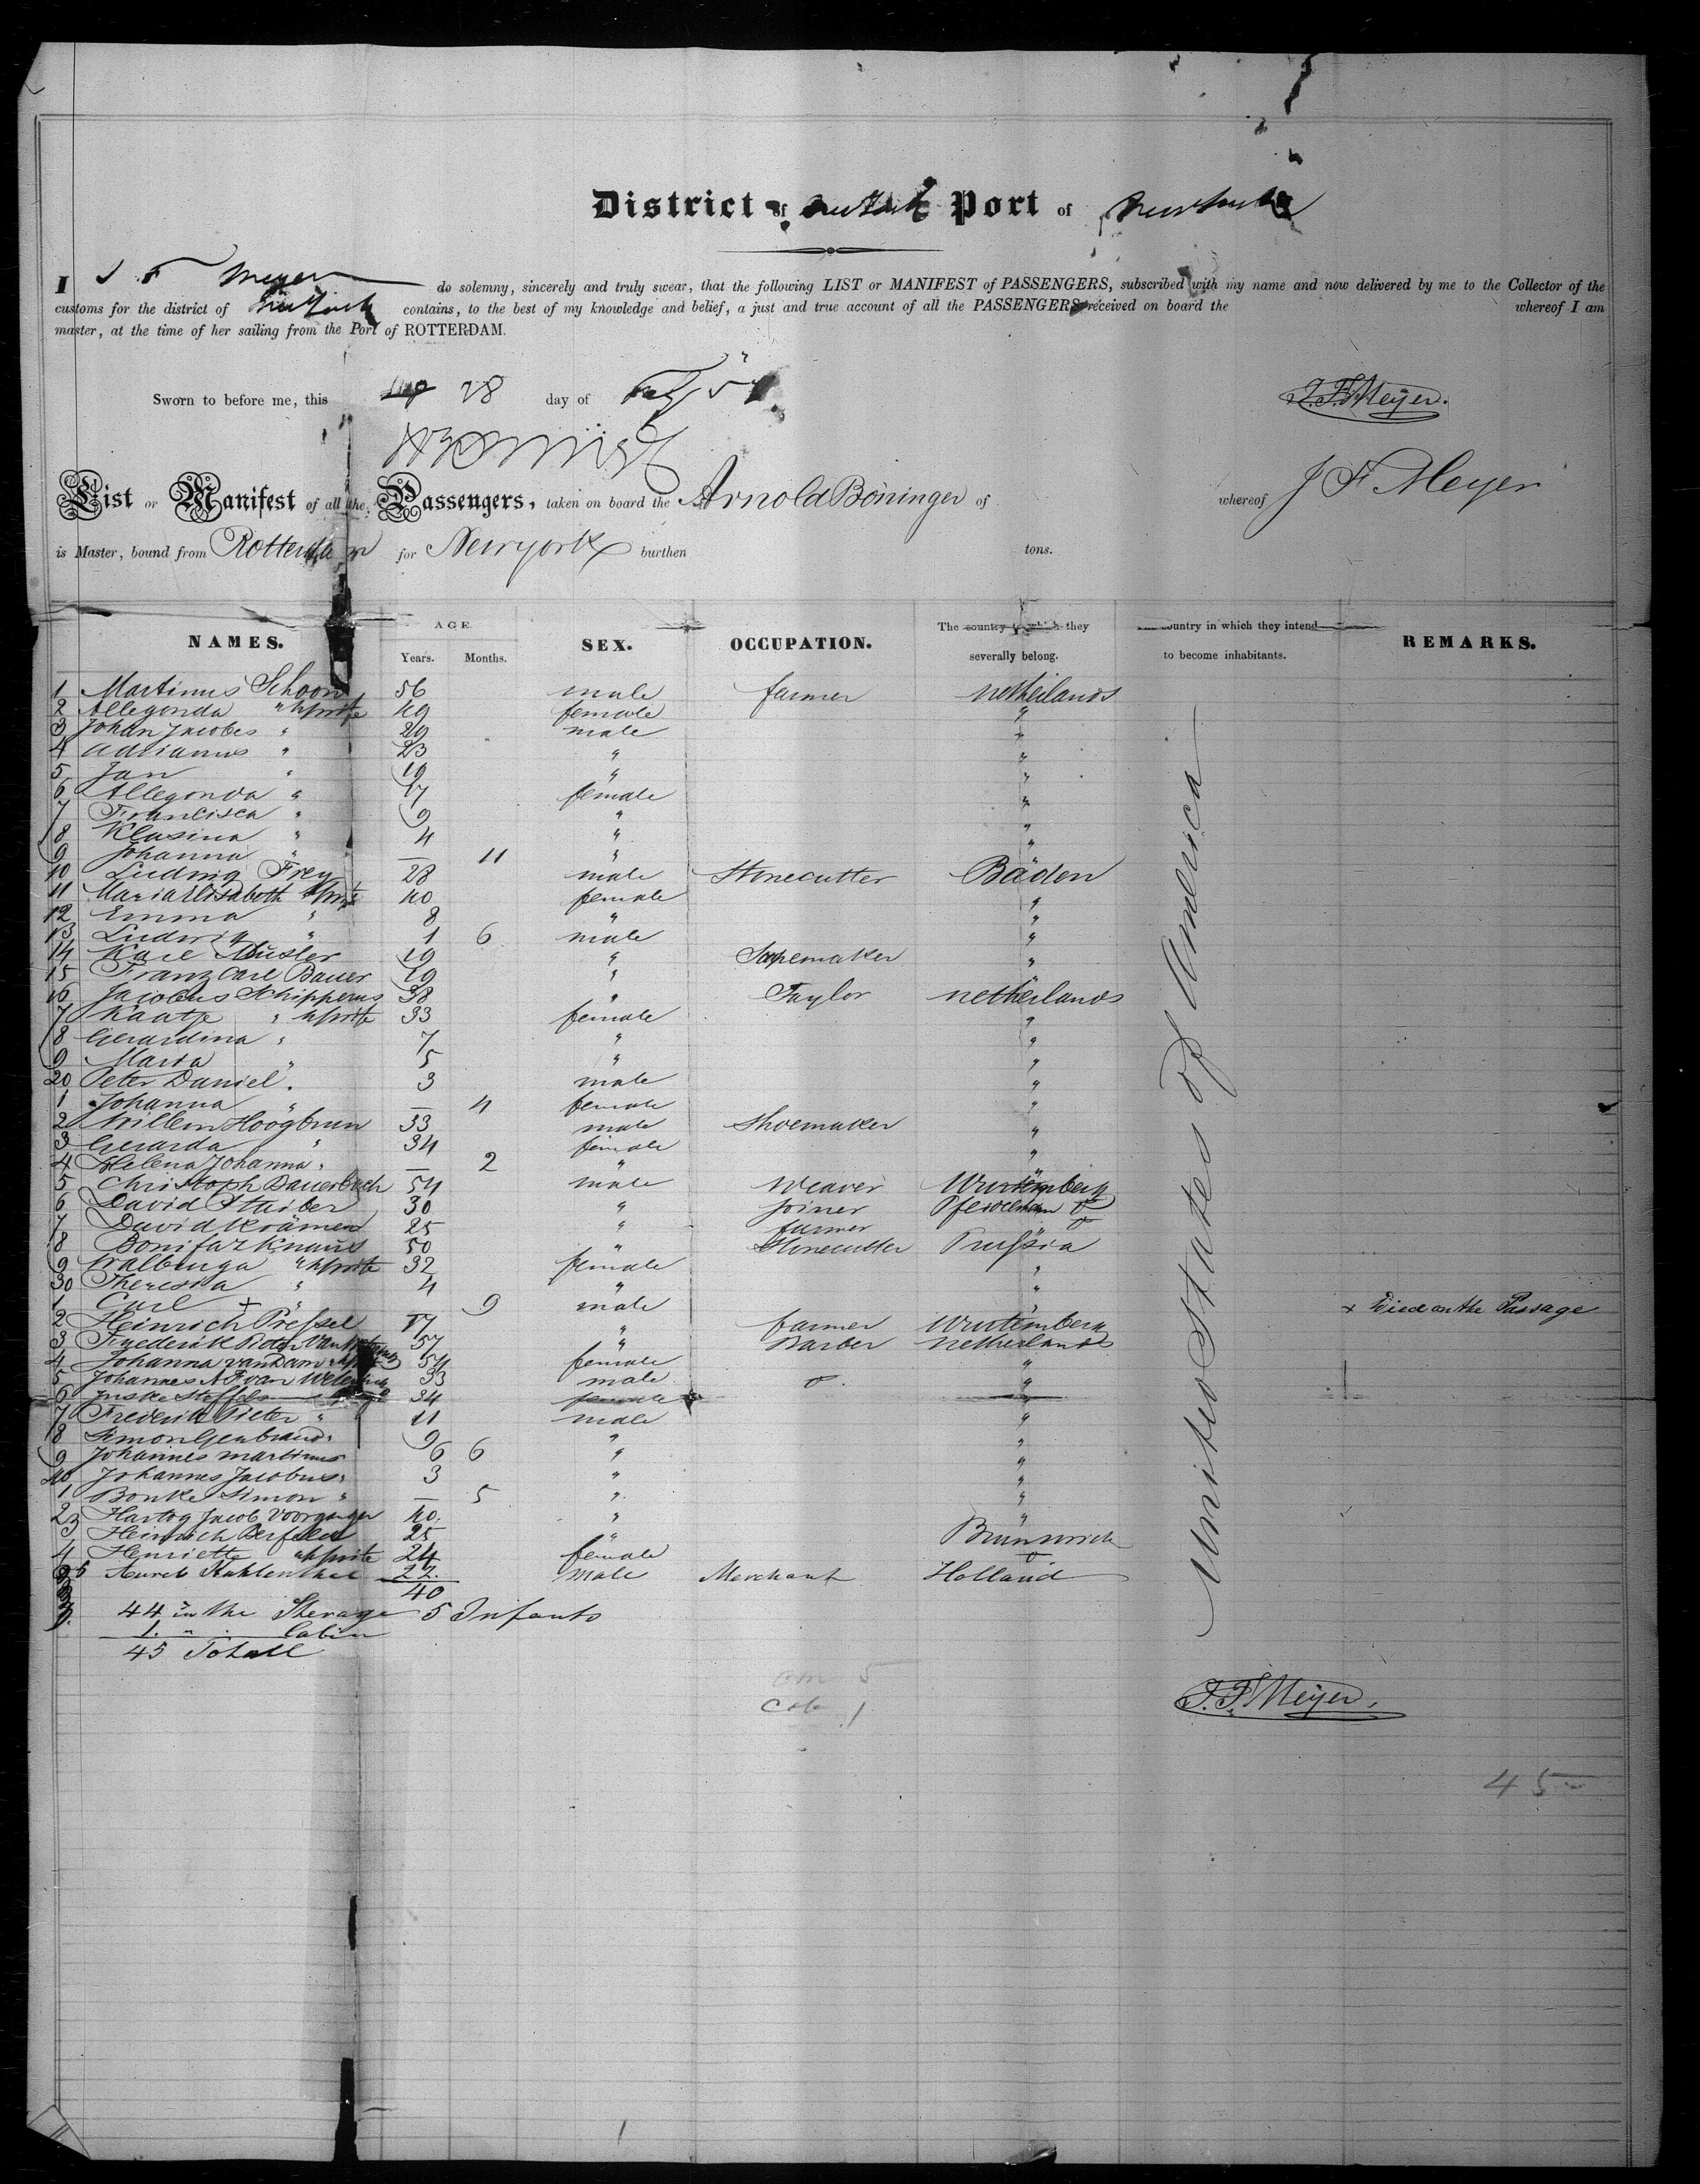 District of New York Port of New York
I J F Meyer do solemny, sincerely and truly swear, that the following LIST or MANIFEST of PASSENGERS, subscribed with my name and now delivered by me to the Collector of the
customs for the district of New York contains, to the best of my knowledge and belief, a just and true account of all the PASSENGERS received on board the whereof I am
master, at the time of her sailing from the Port of ROTTERDAM.
Sworn to before me, this 28 day of
J. F. Meyer.
List or Manifest of all the Passengers, taken on board the Arnold Böninger of whereof J F Meyer
is Master, bound from Rotterdam for Newyork burthen tons.
NAMES. AGE. SEX. OCCUPATION. The country to which they country in which they intend REMARKS.
Years. Months. severally belong. to become inhabitants.
United States of America
1 Martinus Schoon 56 male farmer netherlands
2 Allegonda " 49 female "
3 Johan Jacobes " 29 male "
4 Adrianus " 23 " "
5 Jan " 19 " "
6 Allegonda " 17 female "
7 Francisca " 9 " "
8 Klasina " 4 " "
9 Johanna " — 11 " "
10 Ludwig Frey 28 male Stonecutter Baden
11 Maria Elisabeth 40 female "
12 Emma " 8 " "
13 Ludwig " 1 6 male "
14 Karl 19 " "
15 Franz Carl Bauer 19 " "
16 Jacobus Schipperus 38 " Taylor netherlands
7 Kaatje " 33 female "
8 Gerardina " 7 " "
9 Maria " 5 " "
20 Peter Daniel " 3 male "
1 Johanna " — 4 female "
2 Willem Hoogbruin 33 male Shoemaker "
3 Gerarda " 34 female "
4 Helena Johanna " — 2 " "
5 Christoph Bauerbach 54 male Weaver Wurtemberg
6 David Staiber 30 " joiner
7 David Krämer 25 " farmer
8 Bonifaz Knaus 50 " Stonecutter Prussia
9 Walburga " 32 female "
30 Theresia " 4 " "
1 Carl + " 9 male " + Died on the Passage
2 Heinrich Pressel 17 " farmer Wurtemberg
3 Frederik Pieter Van 57 " Barber netherlands
4 Johanna van Dam 54 female "
5 Johannes A F van 33 male "
6 34 female "
7 Frederik Pieter " 11 male "
8 Simon " 9 " "
9 Johannes martinus 6 6 " "
40 Johannes Jacobus " 3 " "
1 Bonke Simon " — 5 " "
2 Hartog Jacob Voorzanger 40 " "
3 Heinrich 25 " Brunswick
4 Henriette 24 female
5 22. male Merchant Holland
40
44 in the Sterage 5 Infants
1. " . Cabin
45 Totall
5
Cab 1
J. F. Meyer.
45